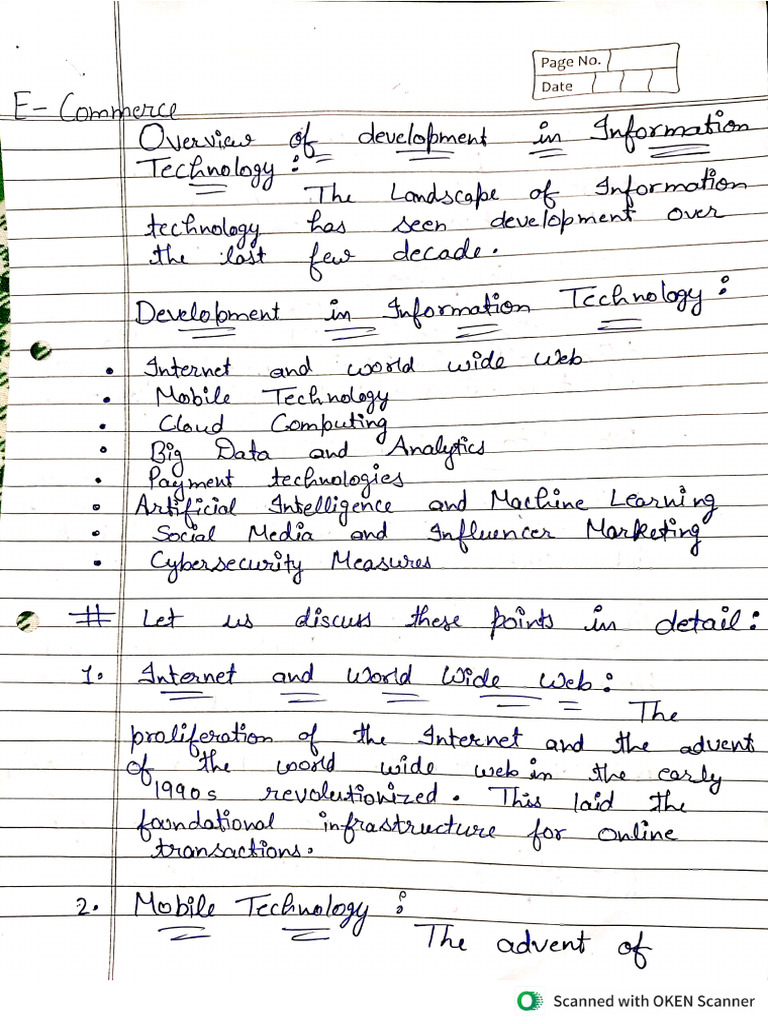 Page No.
Date
E-Commerce
Overview of development in Information
Technology:
The Landscape of Information
technology has seen development over
the last few decade.
Development in Information Technology:
• Internet and world wide web
• Mobile Technology
• Cloud Computing
• Big Data and Analytics
• Payment technologies
• Artificial Intelligence and Machine Learning
• Social Media and Influencer Marketing
• Cybersecurity Measures
# Let us discuss these points in detail:
1. Internet and World Wide Web:
The
proliferation of the Internet and the advent
of the world wide web in the early
1990s revolutionized. This laid the
foundational infrastructure for online
transactions.
2. Mobile Technology:
The advent of
Scanned with OKEN Scanner